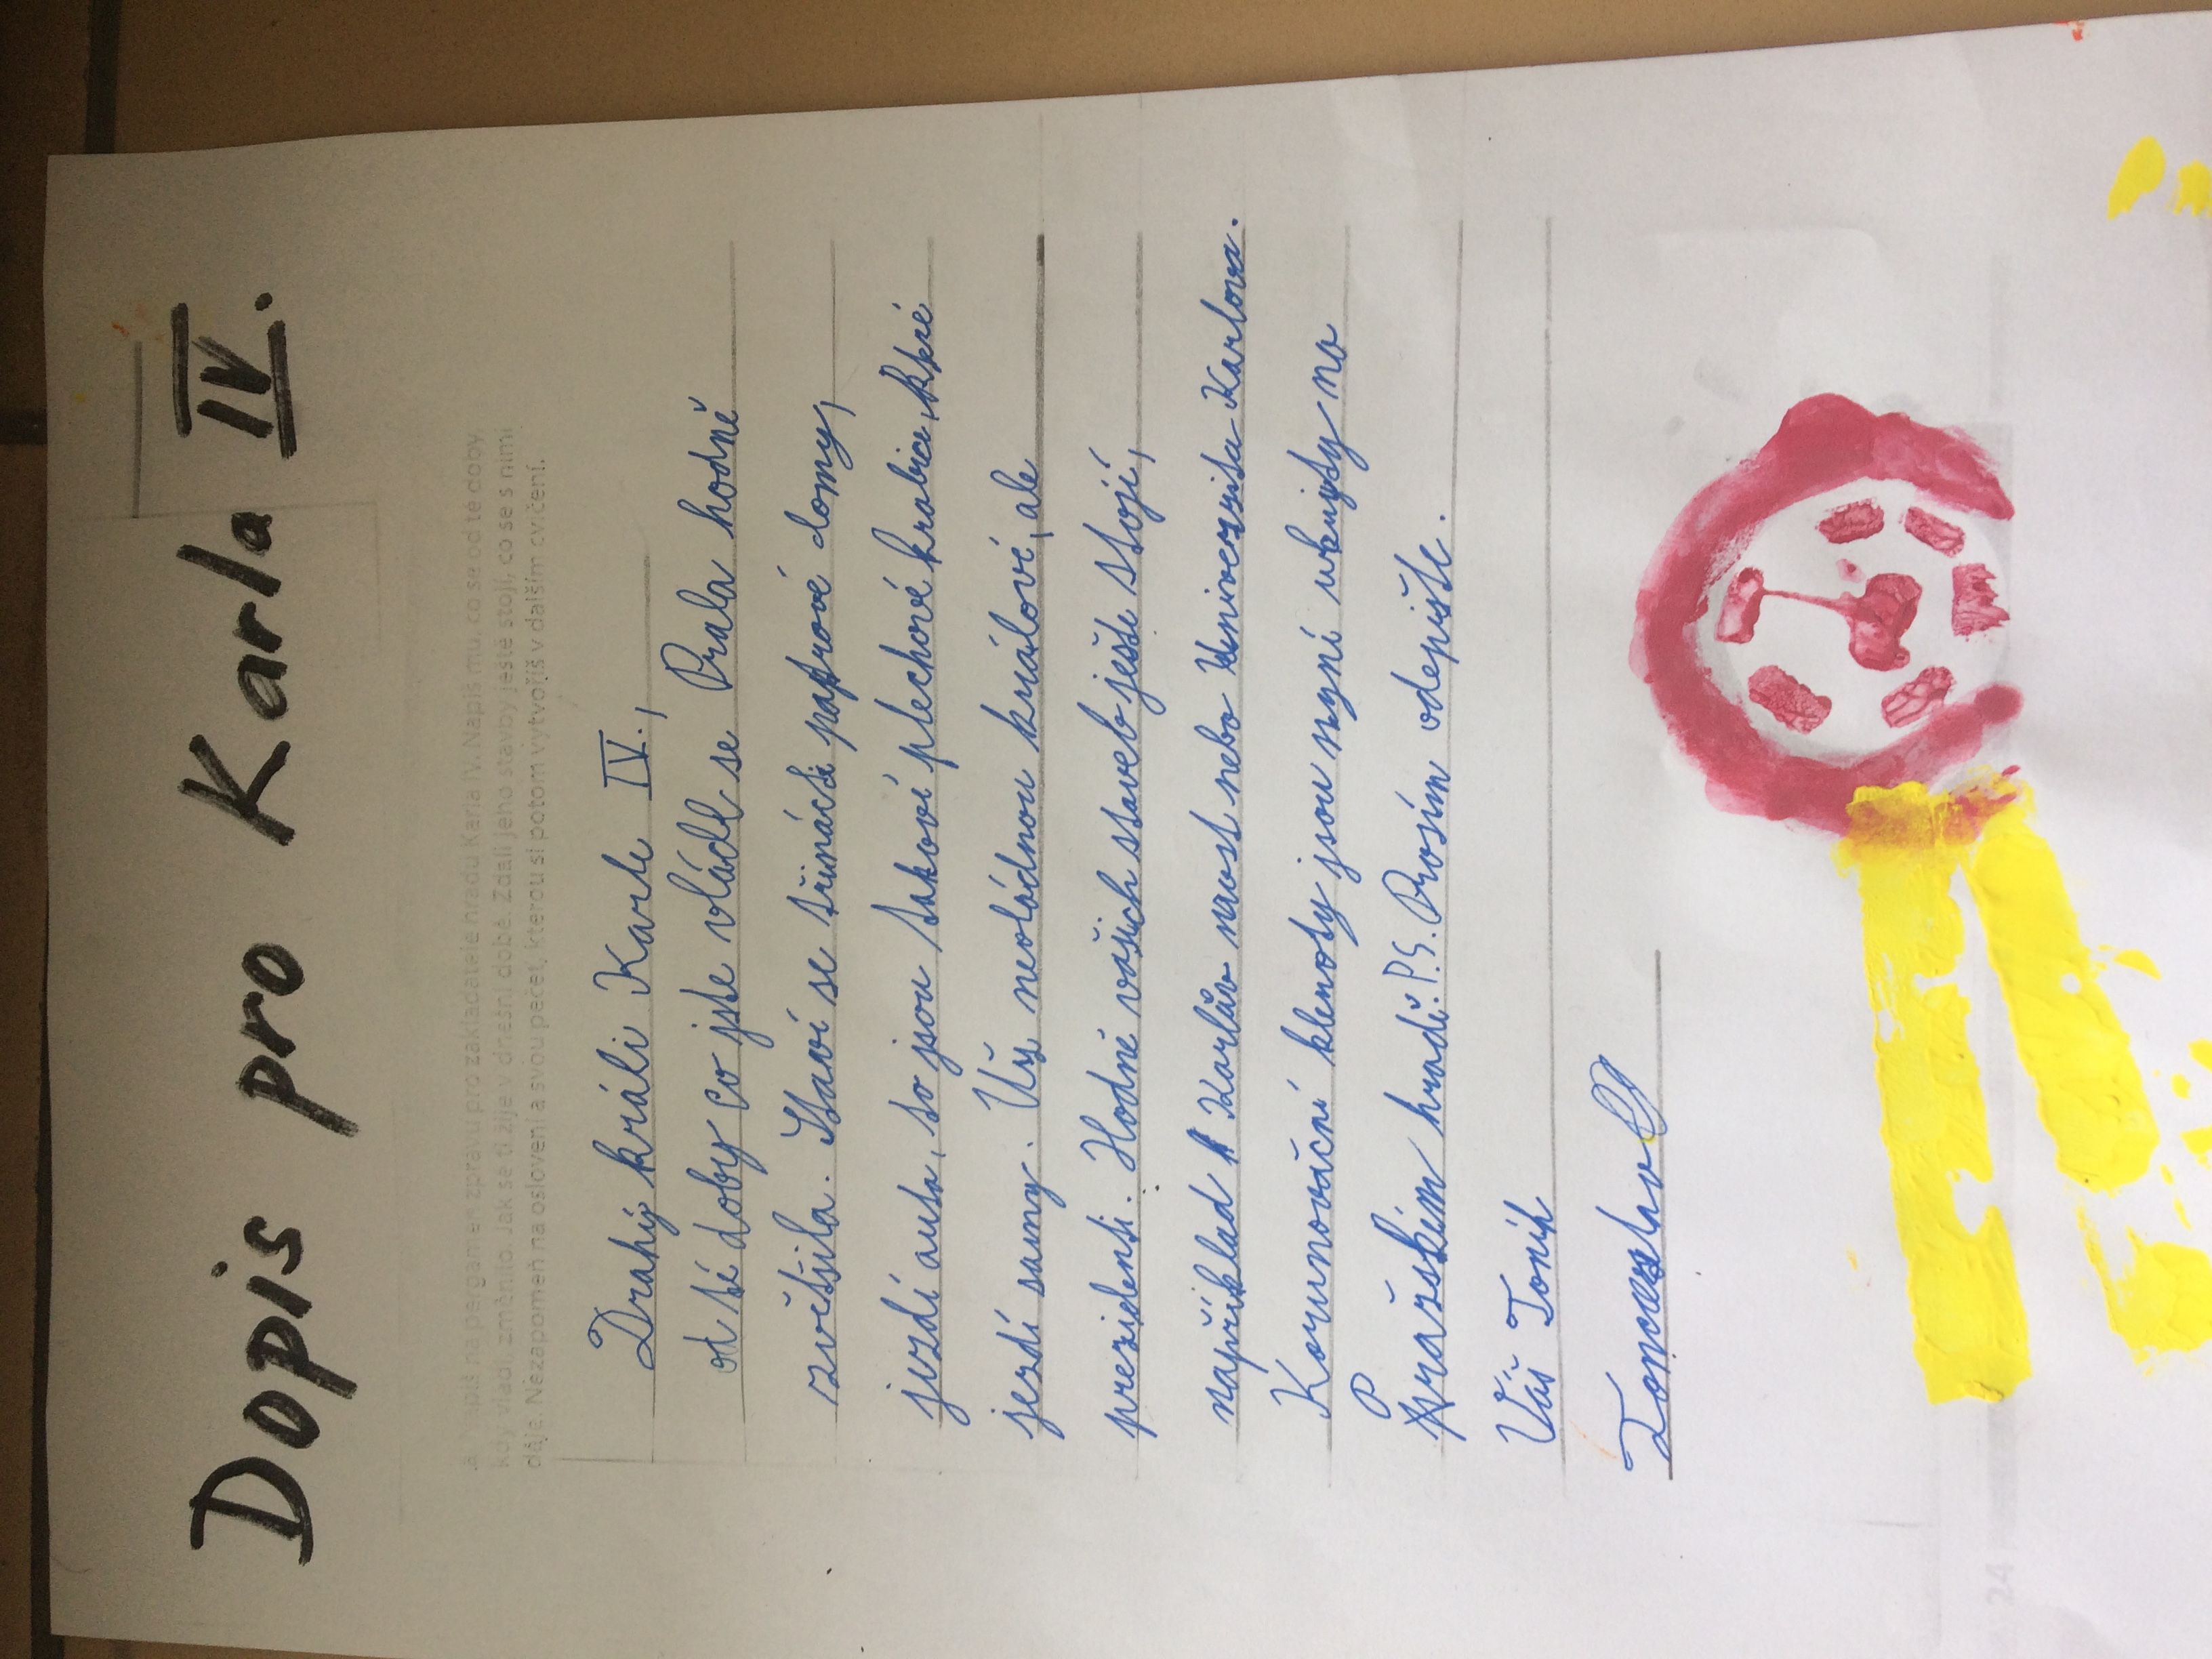 Dopis pro Karla IV.
Napiš na pergamen zprávu pro zakladatele hradu Karla IV. Napiš mu, co se od té doby,
kdy vládl, změnilo. Jak se ti žije v dnešní době. Zdali jeho stavby ještě stojí, co se s nimi
děje. Nezapomeň na oslovení a svou pečeť, kterou si potom vytvoříš v dalším cvičení.
Drahý králi Karle IV.,
od té doby co jste vládl se Praha hodně
zvětšila. Staví se třinácti patrové domy,
jezdí auta, to jsou takové plechové krabice, které
jezdí samy. Už nevládnou králové, ale
prezidenti. Hodně vašich staveb ještě stojí,
například Karlův most nebo Univerzita Karlova.
Korunovační klenoty jsou nyní ukryty na
Pražském hradě. P.S. Prosím odepište.
Váš Toník
24